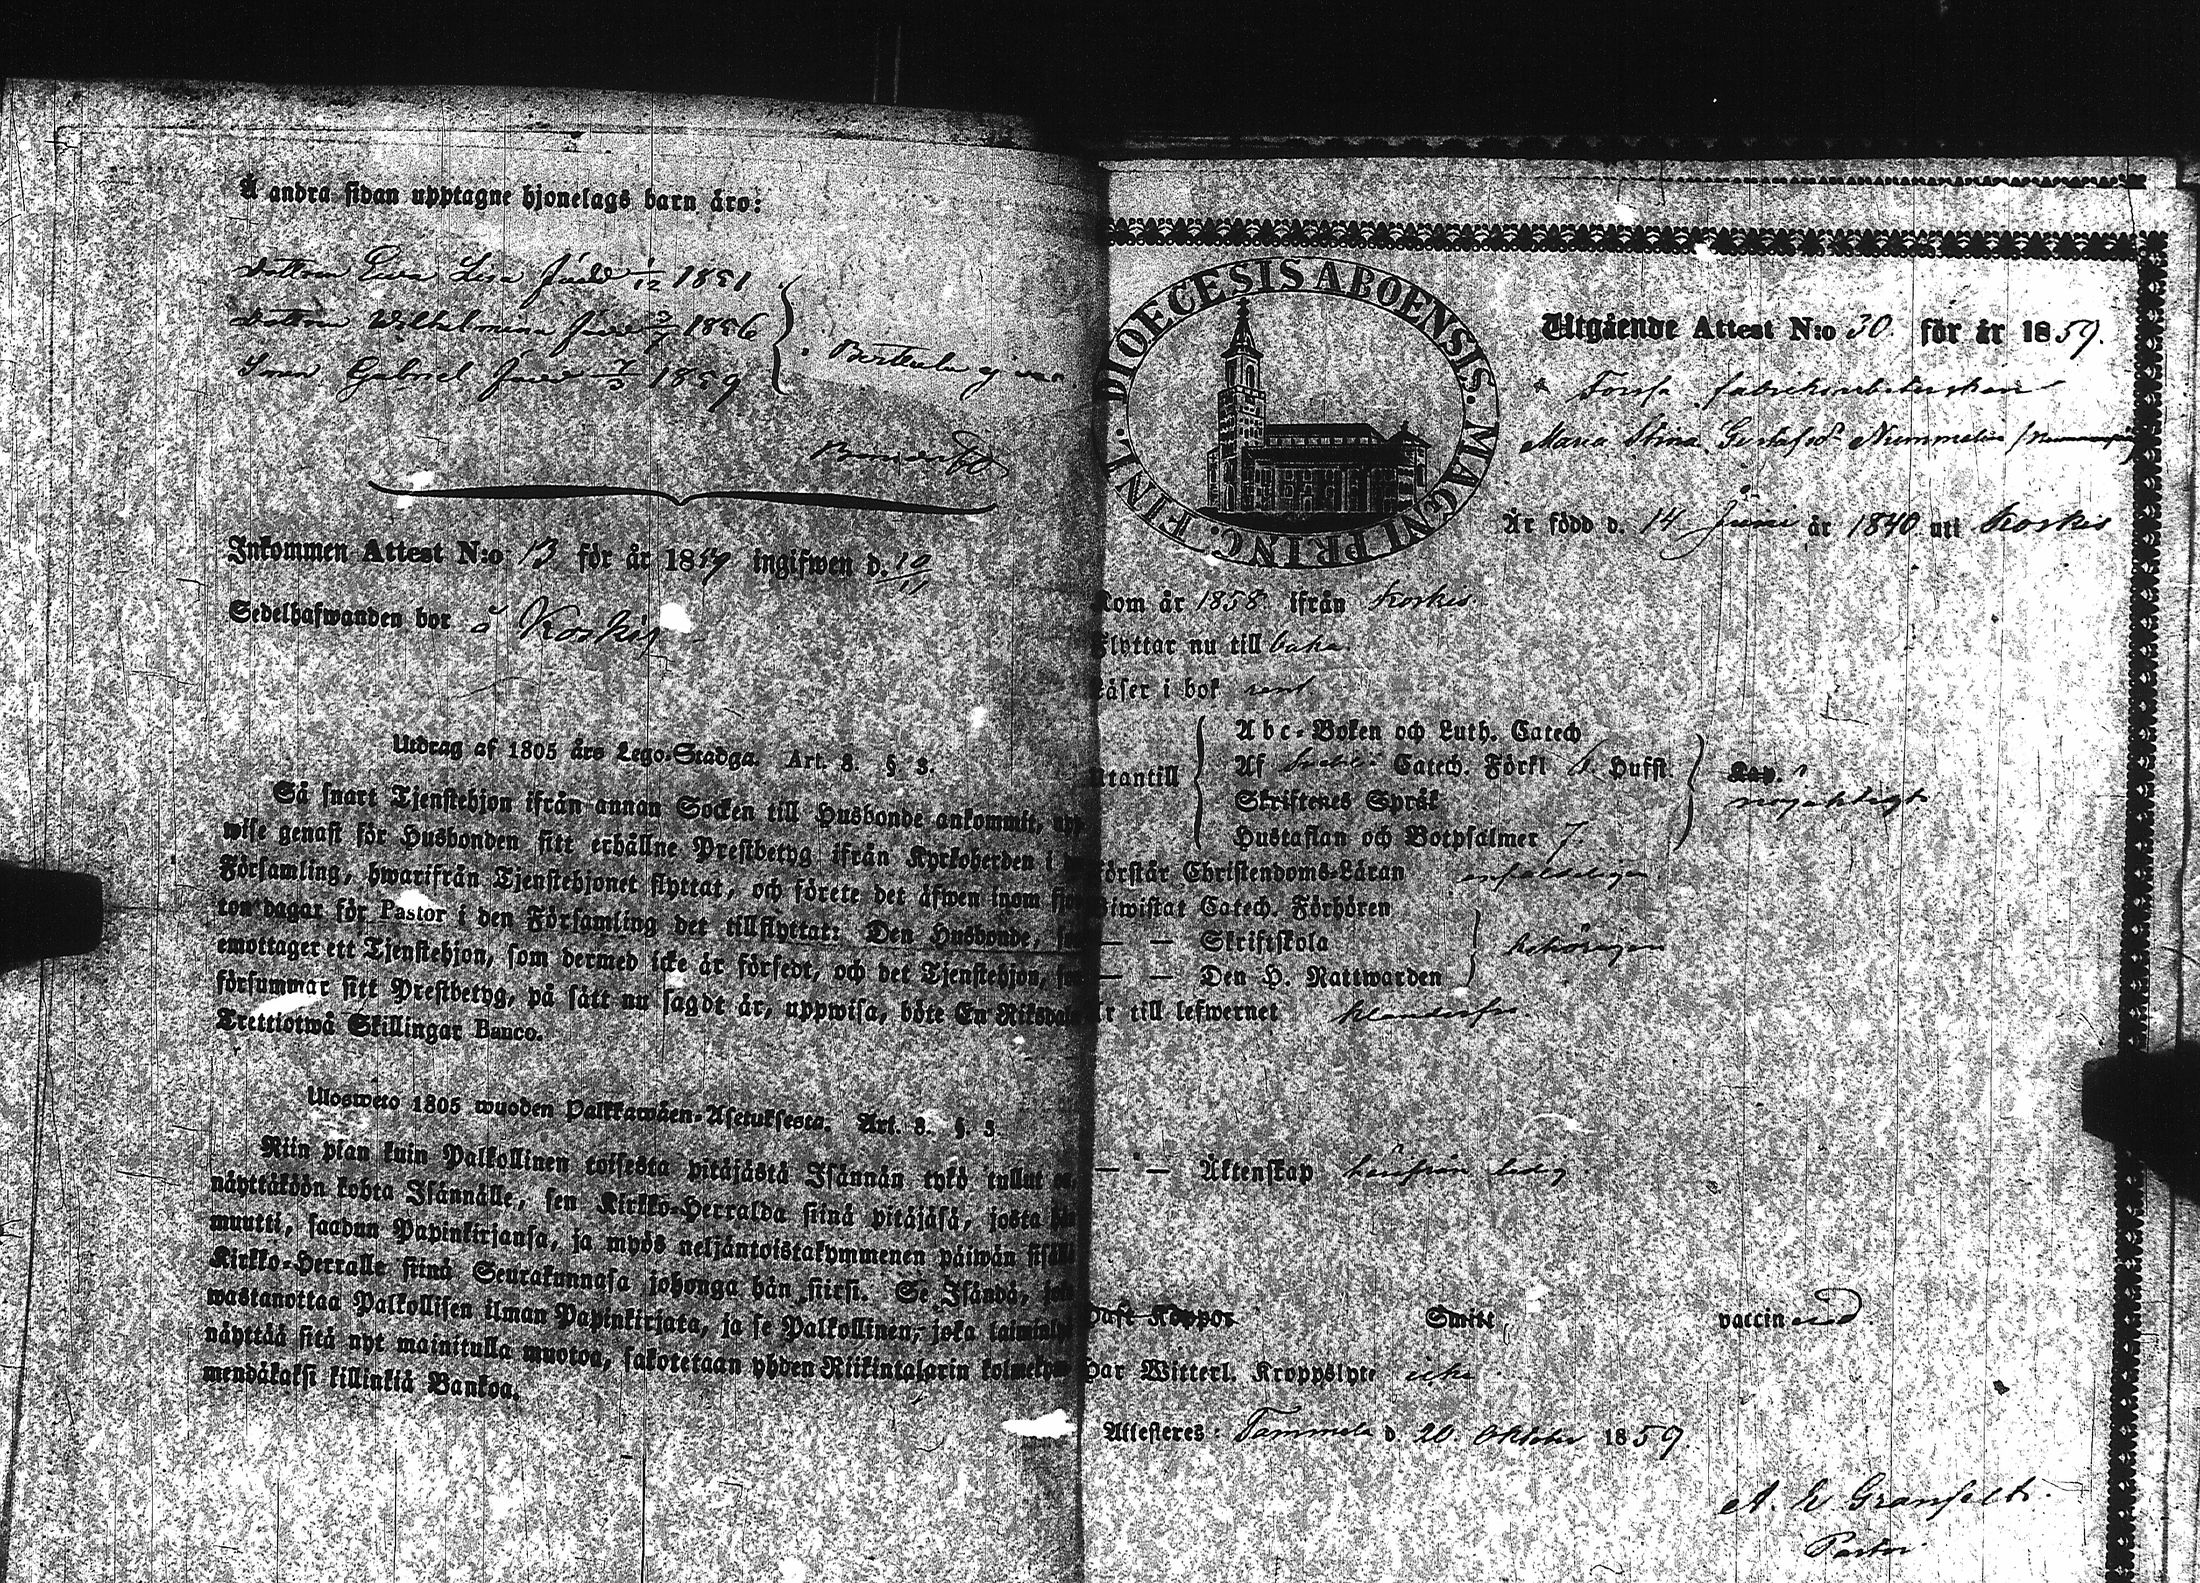 Å andra sidan upptagne hjonelags barn äro:
dottren Ewa Lisa född 1/12 1851
dottren Wilhelmina född 3/7 1856
Sonen Gabriel född 7/3 1859
Inkommen Attest N:o 13 för år 1859 ingifwen d. 10/11
Sedelhafwanden bor å Koskis
Utdrag af 1805 års Lego-Stadga. Art. 3. §. 3.
Så snart Tjenstehjon ifrån annan Socken till Husbonde ankommit,
wise genast för Husbonden sitt erhållne Prestbetyg ifrån Kyrkoherden i
Församling, hwarifrån Tjenstehjonet flyttat, och förete det äfwen inom
ton dagar för Pastor i den Församling det tillflyttat: Den Husbonde,
emottager ett Tjenstehjon, som dermed icke är försedt, och det Tjenstehjon,
försummar sitt Prestbetyg, på sätt nu sagdt är, uppwisa, böte En
Trettiotwå Skillingar Banco.
Ulosweto 1805 wuoden Palkkawäen-Asetuksesta. Art. 3. §. 3.
Niin pian kuin Palkollinen toisesta pitäjästä Isännän tykö tullut
näyttäköön kohta Isännälle, sen Kirkko-Herralda siinä pitäjäsä, josta
muutti, saadun Papinkirjansa, ja myös neljäntoistakymmenen päiwän
Kirkko-Herralle siinä Seurakunnasa johonga hän siirsi. Se Isändä,
wastanottaa Palkollisen ilman Papinkirjata, ja se Palkollinen, joka
näyttää sitä nyt mainitulla muotoa, sakotetaan yhden Riikintalarin
mendäkaksi killinkiä Bankoa.
DIOECESIS ABOENSIS. MAGNI PRINC. FINL.
Utgående Attest N:o 30 för år 1859.
Forssa fabriksarbeterskan
Maria Stina Gustafsdr Nummelin
Är född d. 14 Juni år 1840 uti Koskis
Kom år 1858 ifrån Koskis.
Flyttar nu till baka.
Läser i bok rent
Utantill
Abc-Boken och Luth. Catech
Af Catech. Förkl Husst.
Kap.
Skriftenes Språk
nöjaktigt
Hustaflan och Botpsalmer 7.
Förstår Christendoms-Läran enfaldeligen
Biwistat Catech. Förhören
— — Skriftskola
behörigen
— — Den H. Nattwarden
Är till lefwernet klanderfri
— — Äktenskap hinderfri ledig.
Haft Koppor Smitt, vaccinerad
Har Witterl. Kroppslyte icke
Attesteres: Tammela d. 20. Oktober 1859.
A. E Granfelt.
Pastor